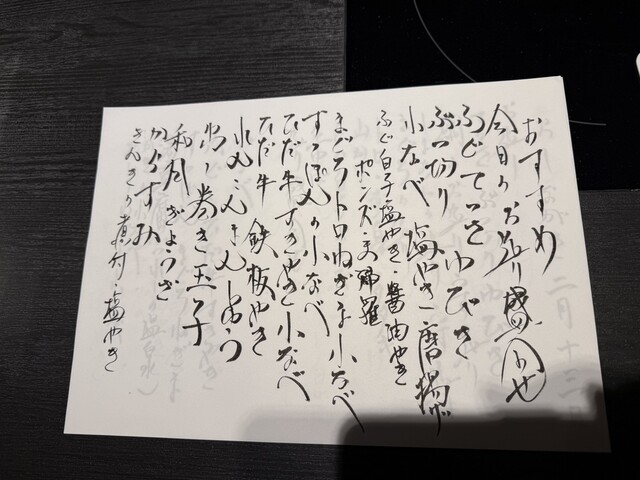 おすすめ
今日のお造り盛合せ
ふぐてっさ ゆびき
ぶつ切り
小なべ 塩やき 唐揚げ
ふぐ白子 塩やき・醤油やき
ポンズ・天婦羅
まぐろトロねぎま小なべ
すっぽんの小なべ
ひだ牛すきやき小なべ
ひだ牛 鉄板やき
れんこんまんじゅう
う巻き玉子
ぎょうざ
からすみ
きんきの煮付・塩やき